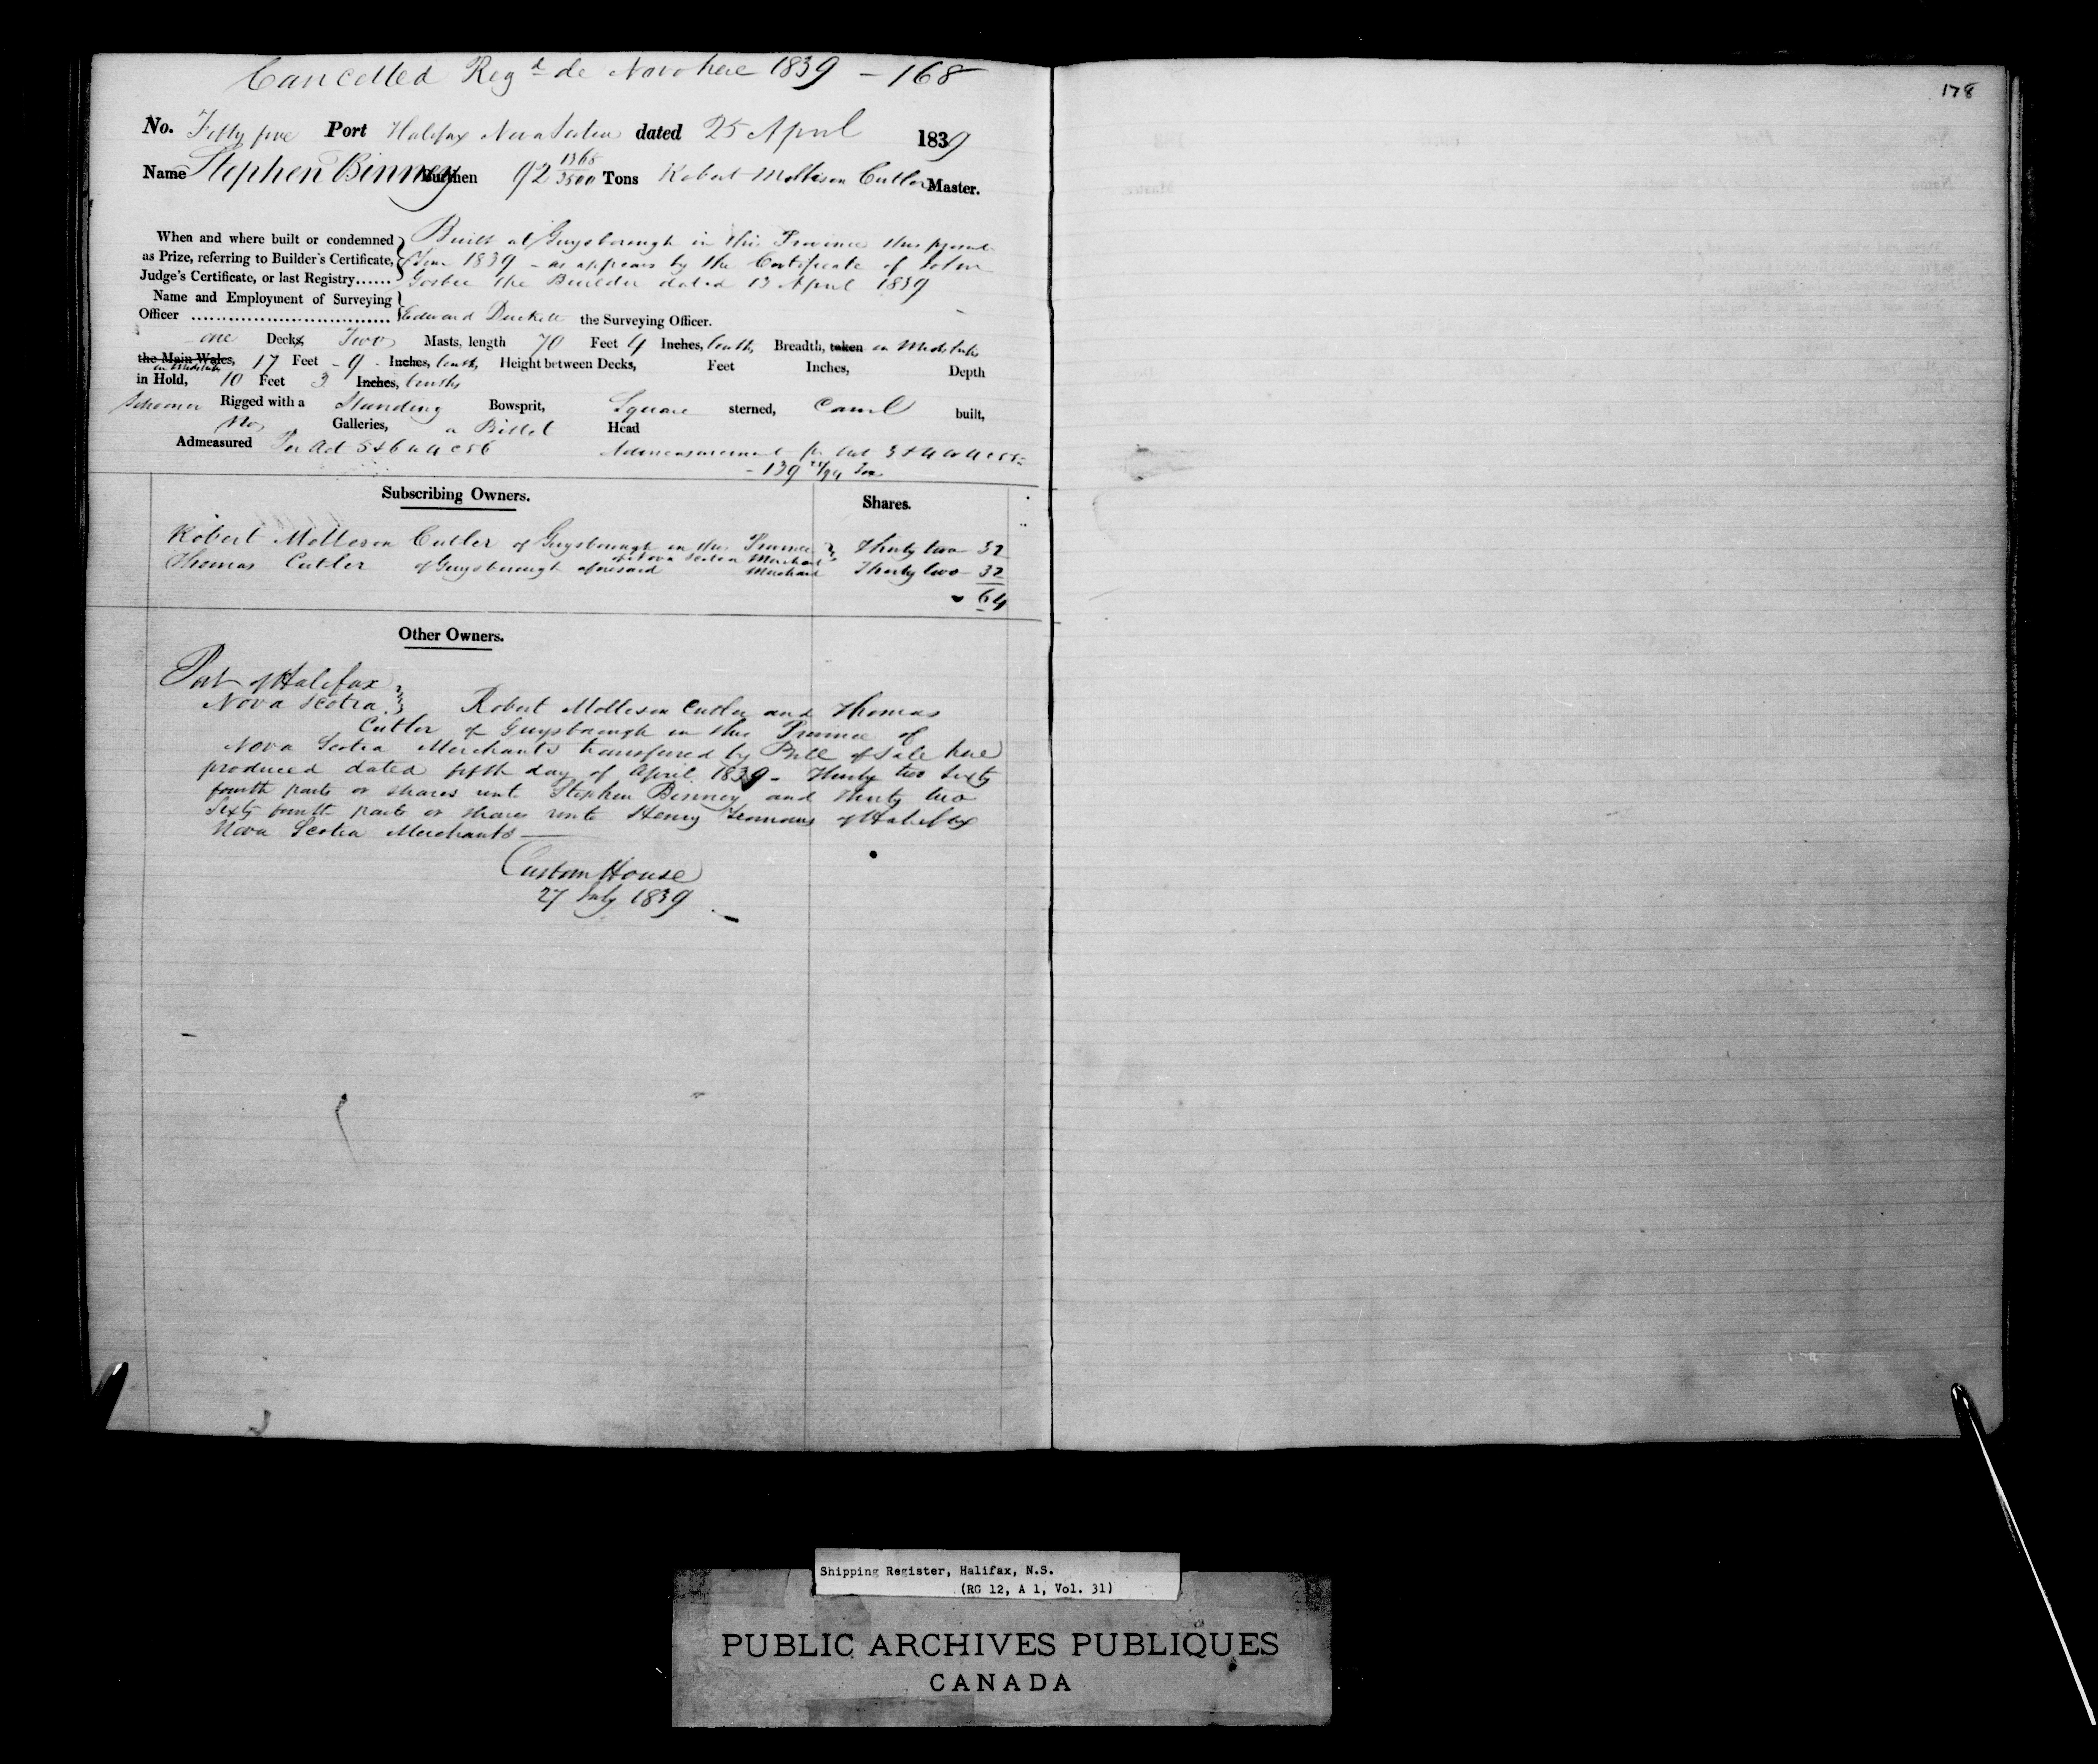 Cancelled Regd de Novo here 1839 - 168
178
No. Fifty five Port Halifax Nova Scotia dated 25 April 1839
Name Stephen Binney Burthen 92 1368/3500 Tons Robert Molleson Cutler Master.
When and where built or condemned as Prize, referring to Builder's Certificate, Judge's Certificate, or last Registry......
Built at Guysborough in this Province this present
Year 1839 - as appears by the Certificate of John
Gosbee the Builder dated 13 April 1839
Name and Employment of Surveying
Officer .............................. Edward Duckett the Surveying Officer.
one Decks Two Masts, length 70 Feet 4 Inches, tenths, Breadth, taken in Midships
the Main Wales, 17 Feet - 9 - Inches, tenths, Height between Decks, Feet Inches, Depth
in Midships
in Hold, 10 Feet 3 Inches, tenths
Schooner Rigged with a Standing Bowsprit, Square sterned, Carvel built,
No Galleries, a Billet Head
Admeasured Per Act 5 & 6 W 4 C 56 Admeasurement pr Act 3 & 4 W 4 C 55
- 139 /94 Tons
Subscribing Owners. Shares.
Robert Molleson Cutler of Guysborough in the Province Thirty two - 32
of Nova Scotia Merchant
Thomas Cutler of Guysborough aforesaid Merchant Thirty two - 32
64
Other Owners.
Port of Halifax
Nova Scotia Robert Molleson Cutler and Thomas
Cutler of Guysborough in the Province of
Nova Scotia Merchants transfered by Bill of Sale here
produced dated fifth day of April 1839 - Thirty two Sixty
fourth parts or shares unto Stephen Binney and thirty two
Sixty fourth parts or shares unto Henry Yeomans of Halifax
Nova Scotia Merchants
Custom House
27 July 1839
Shipping Register, Halifax, N.S.
(RG 12, A 1, Vol. 31)
PUBLIC ARCHIVES PUBLIQUES
CANADA